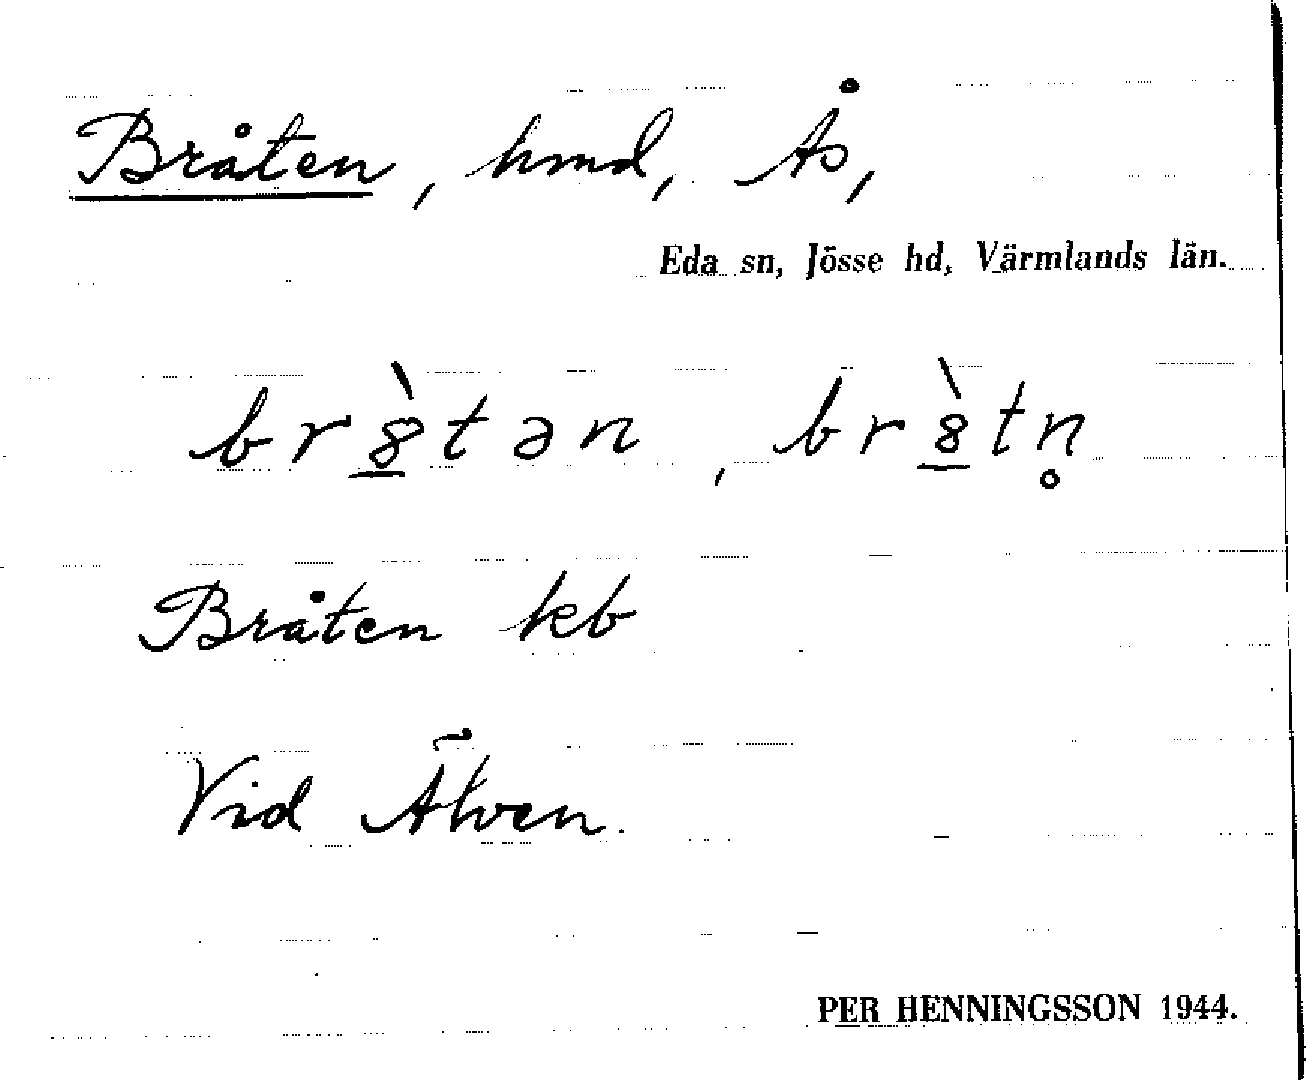 Bråten, hmd, Ås,
Eda sn, Jösse hd, Värmlands län.
br8̲̀tən, br8̲̀tn̥
Bråten kb
Vid Älven.
PER HENNINGSSON 1944.